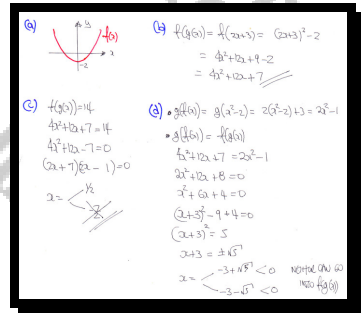 (a)
y
f(x)
x
-2
(b) f(g(x)) = f(2x+3) = (2x+3)² - 2
= 4x²+12x+9-2
= 4x²+12x+7
(c) f(g(x))=14
4x²+12x+7=14
4x²+12x-7=0
(2x+7)(2x-1)=0
x= ½
(d) • g(f(x)) = g(x²-2) = 2(x²-2)+3 = 2x²-1
• g(f(x)) = f(g(x))
4x²+12x+7 = 2x²-1
2x²+12x+8=0
x²+6x+4=0
(x+3)²-9+4=0
(x+3)² = 5
x+3 = ±√5
x= -3+√5 < 0 NEITHER CAN GO
-3-√5 < 0 INTO fg(x)